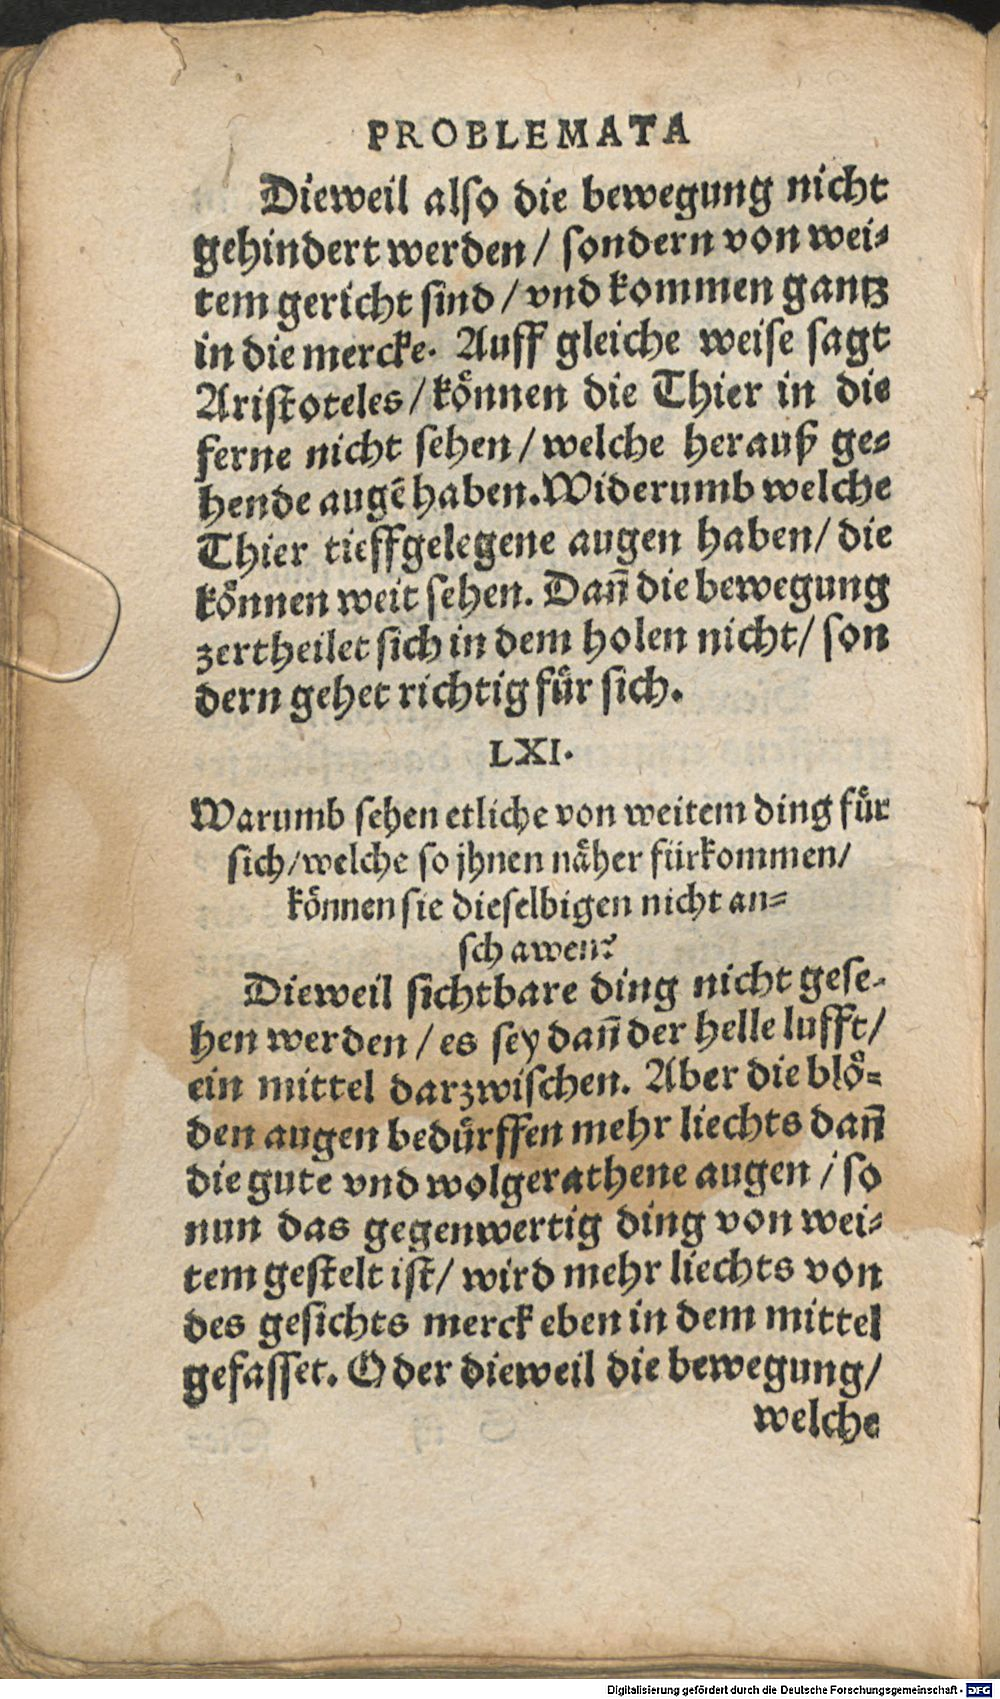 PROBLEMATA
Dieweil also die bewegung nicht
gehindert werden / sondern von wei-
tem gericht sind / vnd kommen gantz
in die mercke. Auff gleiche weise sagt
Aristoteles / koͤnnen die Thier in die
ferne nicht sehen / welche herauß ge-
hende augē haben. Widerumb welche
Thier tieffgelegene augen haben / die
koͤnnen weit sehen. Dañ die bewegung
zertheilet sich in dem holen nicht / son
dern gehet richtig fuͤr sich.
LXI.
Warumb sehen etliche von weitem ding fuͤr
sich / welche so jhnen naͤher fuͤrkommen /
koͤnnen sie dieselbigen nicht an-
schawen?
Dieweil sichtbare ding nicht gese-
hen werden / es sey dañ der helle lufft /
ein mittel darzwischen. Aber die bloͤ-
den augen beduͤrffen mehr liechts dañ
die gute vnd wolgerathene augen / so
nun das gegenwertig ding von wei-
tem gestelt ist / wird mehr liechts von
des gesichts merck eben in dem mittel
gefasset. Oder dieweil die bewegung /
welche
Digitalisierung gefördert durch die Deutsche Forschungsgemeinschaft - DFG